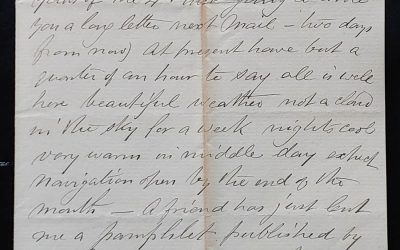 you a long letter next mail – two days
from now) At present have but a
quarter of an hour to say all is well
here beautiful weather not a cloud
in the sky for a week nights cool
very warm in middle day expect
navigation open by the end of the
month – A friend has just lent
me a pamphlet published by